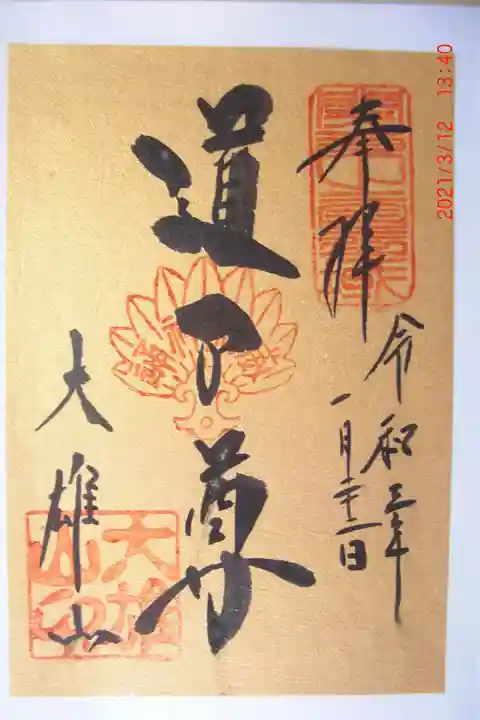 奉拝
令和三年
一月二十二日
道了尊
大雄山
大雄山印
2021/3/12 13:40